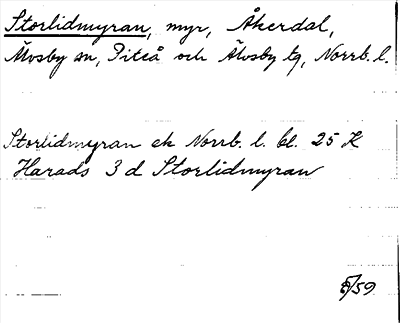 Storlidmyran, myr, Åkerdal,
Älvsby sn, Piteå och Älvsby tg, Norrb. l.
Storlidmyran ek Norrb. l. bl. 25 K
Harads 3 d Storlidmyran
8/59